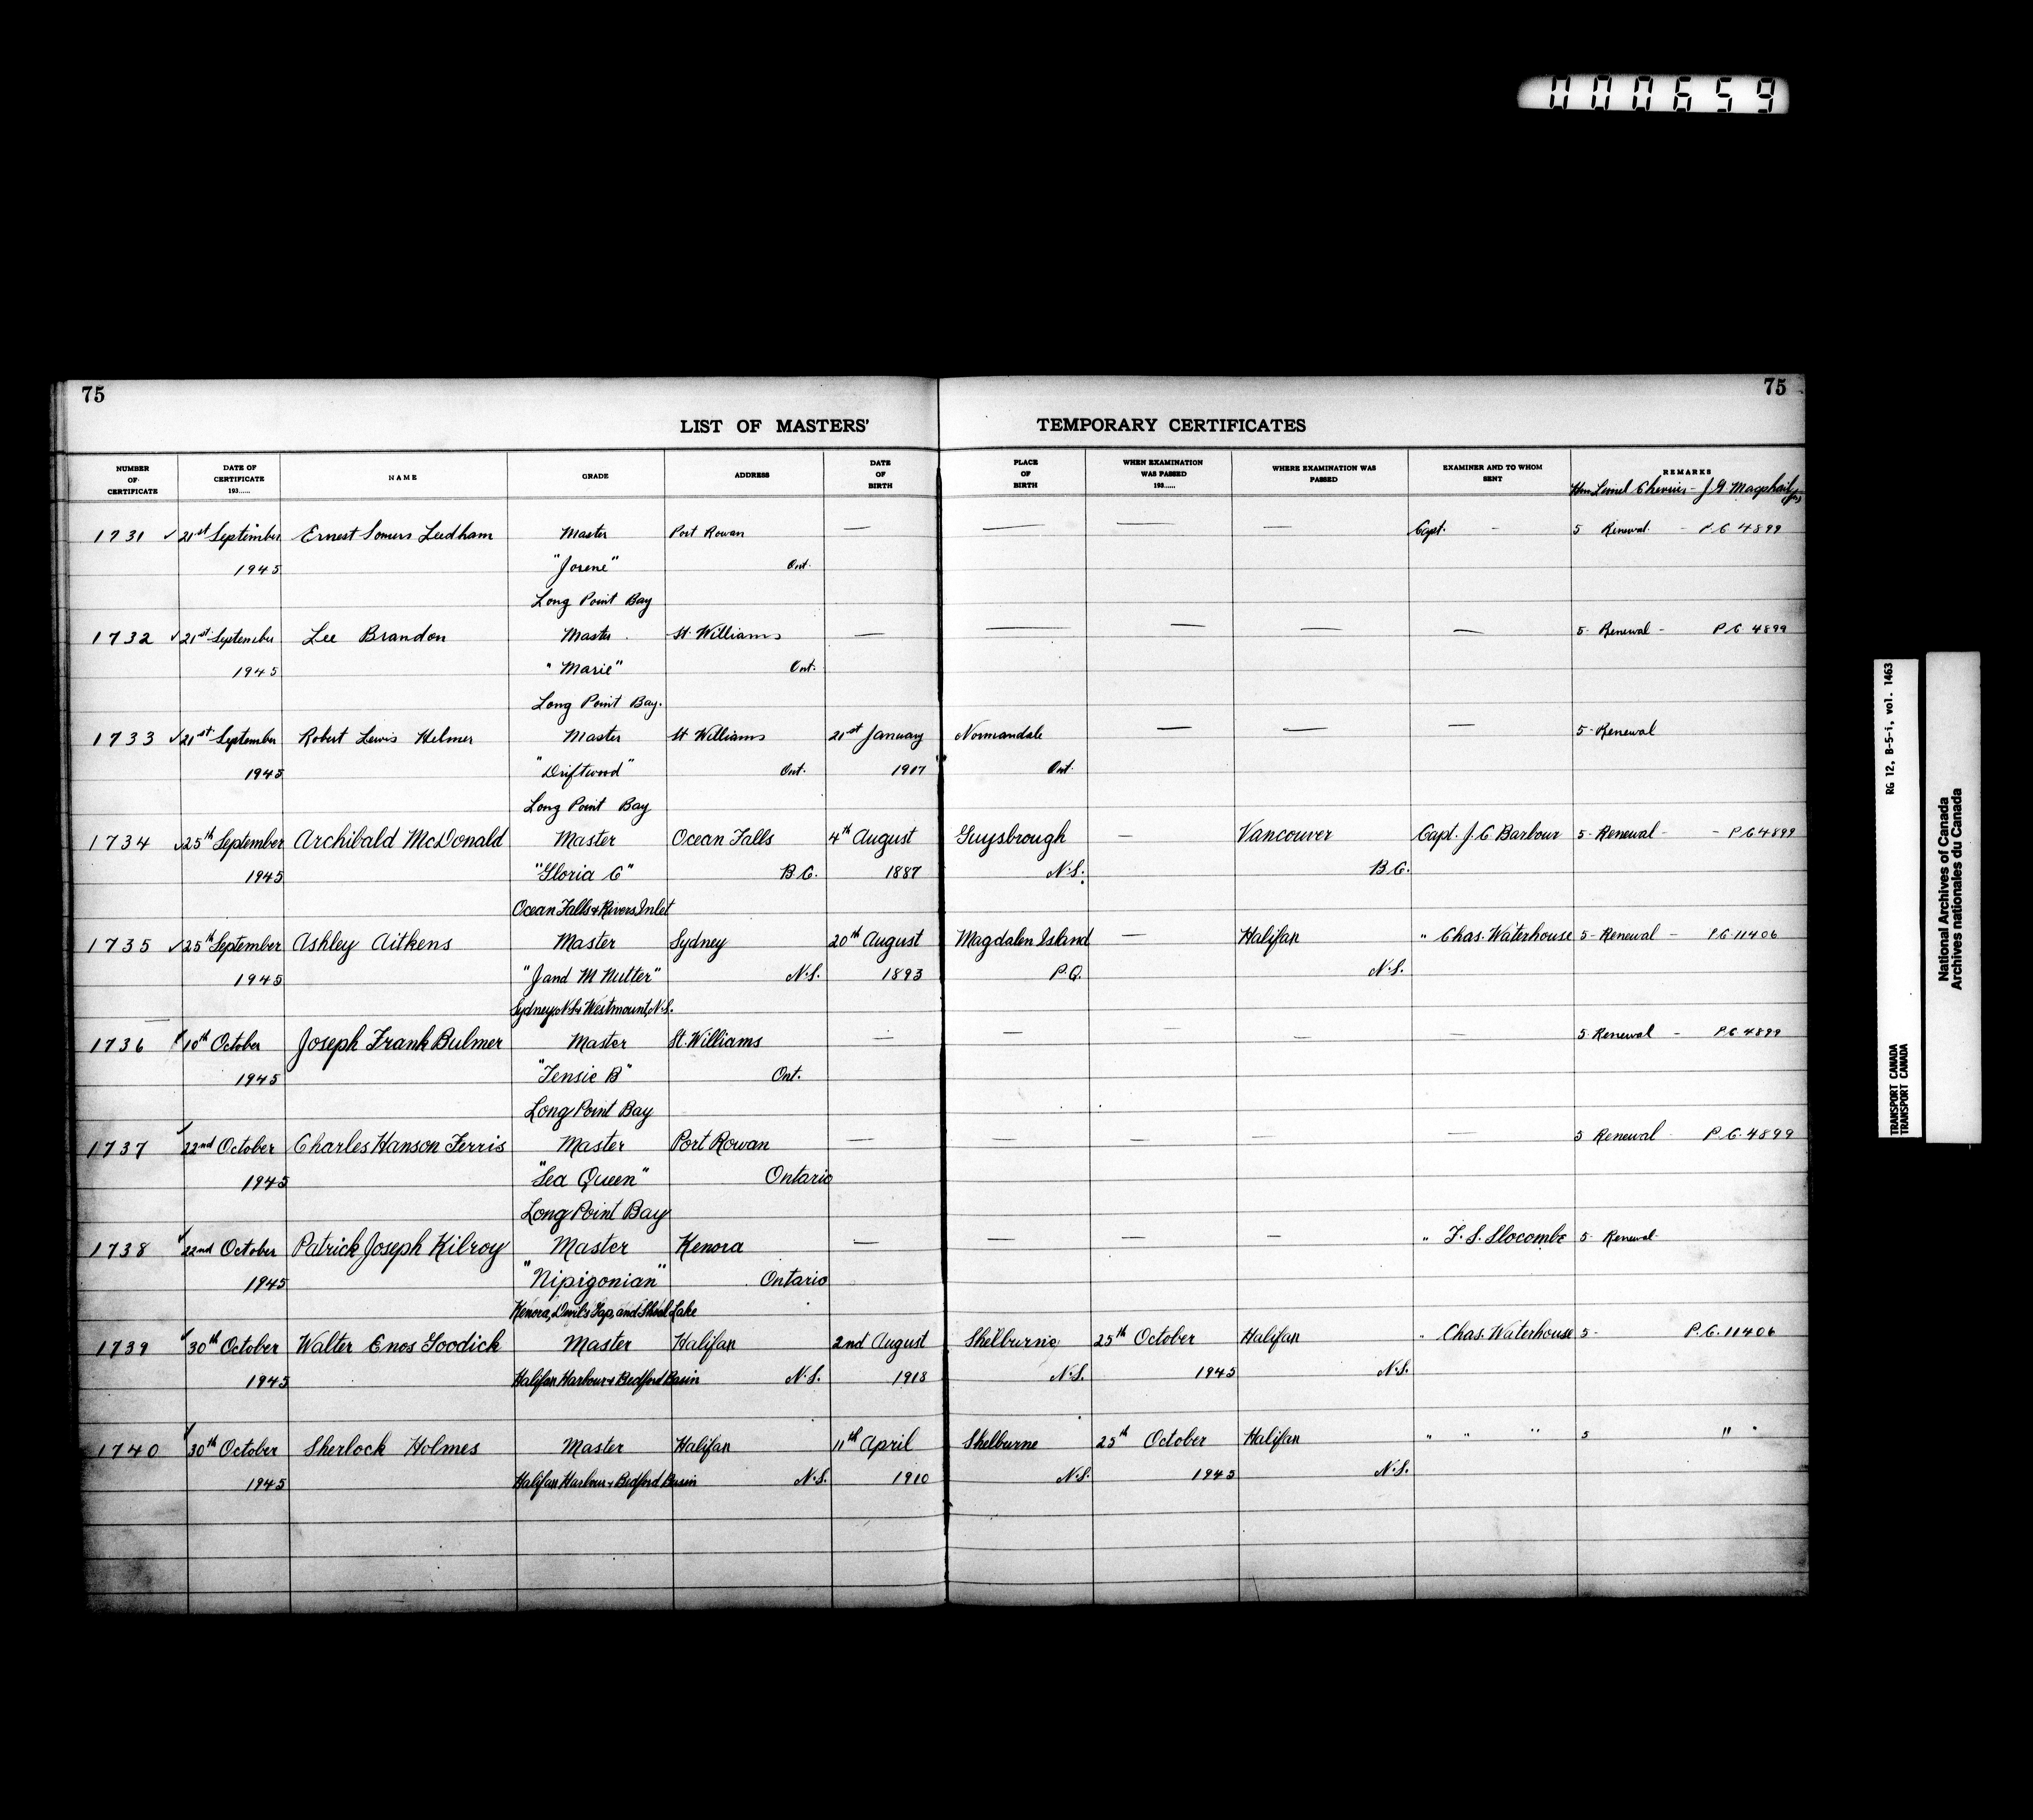 000659
75
75
LIST OF MASTERS' TEMPORARY CERTIFICATES
NUMBER OF CERTIFICATE
DATE OF CERTIFICATE 193......
NAME
GRADE
ADDRESS
DATE OF BIRTH
PLACE OF BIRTH
WHEN EXAMINATION WAS PASSED 193......
WHERE EXAMINATION WAS PASSED
EXAMINER AND TO WHOM SENT
REMARKS
Hon Lionel Chevrier - J.G. Macphail
1731 ✓ 21st September Ernest Somers Leedham Master Port Rowan — — — — Capt. - 5 Renewal - P.C 4899
1945 "Jorene" Ont.
Long Point Bay
1732 ✓ 21st September Lee Brandon Master St. Williams — — — — — 5- Renewal - P.C. 4899
1945 "Marie" Ont.
Long Point Bay.
1733 ✓ 21st September Robert Lewis Helmer Master St Williams 21st January Normandale — — — 5- Renewal
1945 "Driftwood" Ont. 1917 Ont.
Long Point Bay
1734 ✓ 25th September Archibald McDonald Master Ocean Falls 4th August Guysbrough — Vancouver Capt. J.C Barbour 5- Renewal - - P.C 4899
1945 "Gloria C" B.C. 1887 N.S. B.C.
Ocean Falls & Rivers Inlet
1735 ✓ 25th September Ashley Aitkens Master Sydney 20th August Magdalen Island — Halifax " Chas. Waterhouse 5- Renewal - P.C. 11406
1945 "J and M Nutter" N.S. 1893 P.Q. N.S.
Sydney, N.S. & Westmount, N.S.
1736 10th October Joseph Frank Bulmer Master St. Williams — — — — — 5- Renewal - P.C. 4899
1945 "Tensie B" Ont.
Long Point Bay
1737 ✓ 22nd October Charles Hanson Ferris Master Port Rowan — — — — — 5 Renewal P.C. 4899
1945 "Sea Queen" Ontario
Long Point Bay
1738 ✓ 22nd October Patrick Joseph Kilroy Master Kenora — — — — " F.S. Slocombe 5- Renewal
1945 "Nipigonian" Ontario
Kenora, Devil's Gap, and Shoal Lake
1739 ✓ 30th October Walter Enos Goodick Master Halifax 2nd August Shelburne 25th October Halifax " Chas. Waterhouse 5- P.C. 11406
1945 Halifax Harbour & Bedford Basin N.S. 1918 N.S. 1945 N.S.
1740 ✓ 30th October Sherlock Holmes Master Halifax 11th April Shelburne 25th October Halifax " " " 5 " "
1945 Halifax Harbour & Bedford Basin N.S. 1910 N.S. 1945 N.S.
RG 12, B-5-i, vol. 1463
TRANSPORT CANADA
TRANSPORT CANADA
National Archives of Canada
Archives nationales du Canada